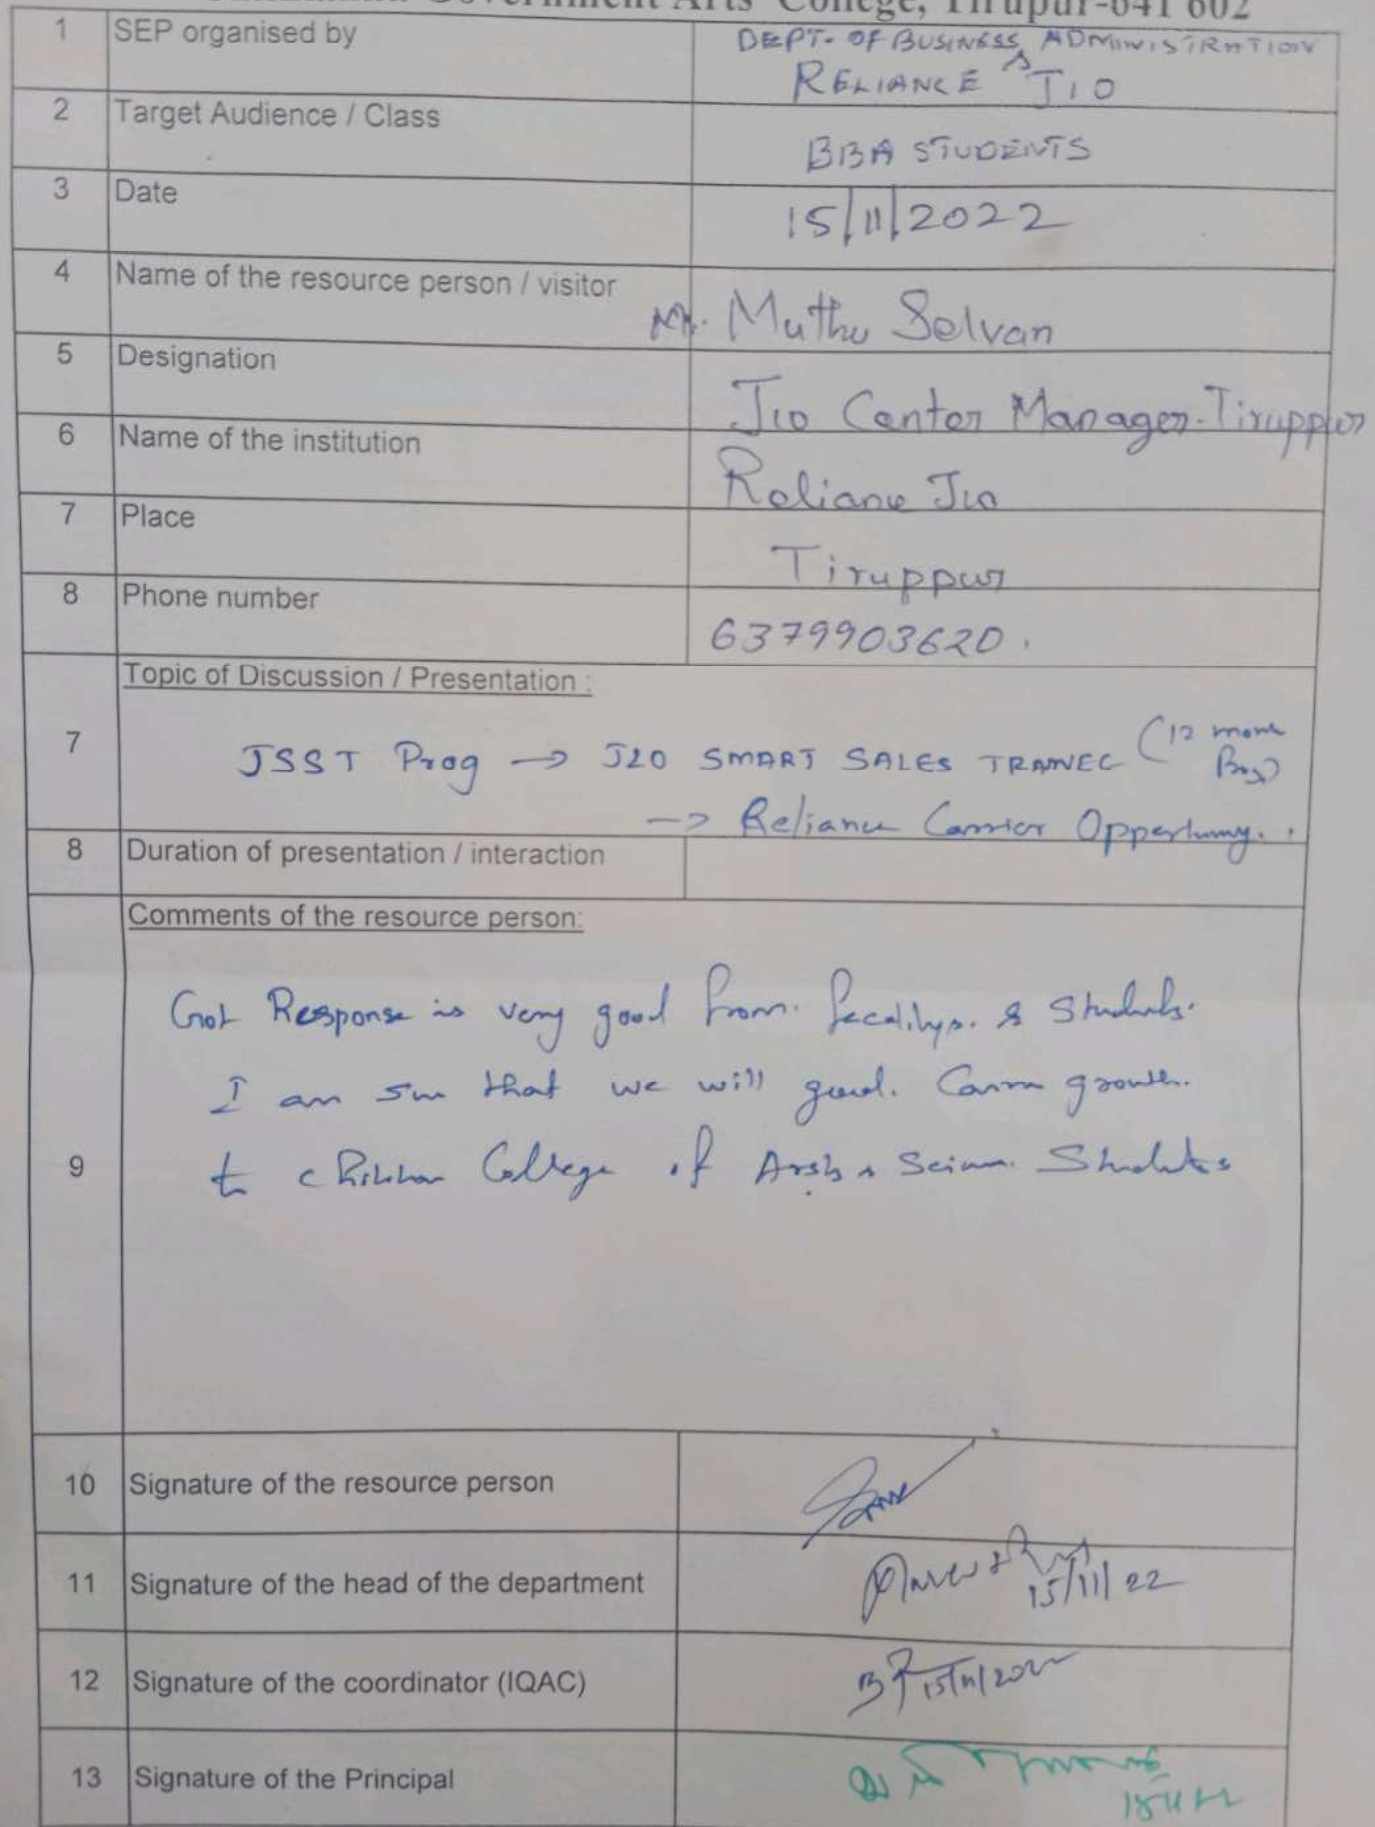 Government Arts College, Tirupur-641 602
1 SEP organised by DEPT. OF BUSINESS ADMINISTRATION
& RELIANCE JIO
2 Target Audience / Class BBA STUDENTS
3 Date 15/11/2022
4 Name of the resource person / visitor Mr. Muthu Selvan
5 Designation Jio Center Manager-Tiruppur
6 Name of the institution Reliance Jio
7 Place Tiruppur
8 Phone number 6379903620.
Topic of Discussion / Presentation :
7 JSST Prog → JIO SMART SALES TRAINEE (12 month
→ Reliance Carrier Oppertunity.
8 Duration of presentation / interaction
Comments of the resource person:
Got Response is very good from & Students.
I am that we will good. growth.
9 to College of Arts & Students
10 Signature of the resource person
11 Signature of the head of the department 15/11/22
12 Signature of the coordinator (IQAC) 15/11/2022
13 Signature of the Principal